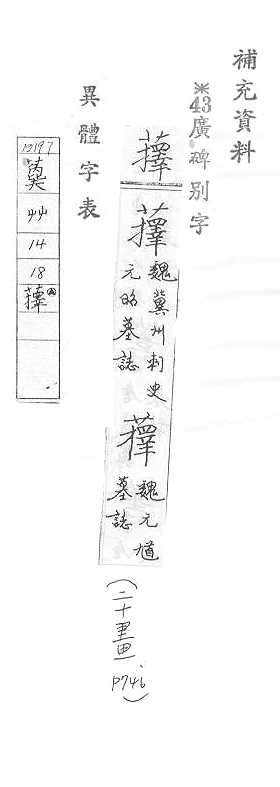 補充資料
※43廣碑別字
蘀
魏冀州刺史
元昭墓誌
魏元
墓誌
(二十畫 P746)
異體字表
13197
艸
14
18